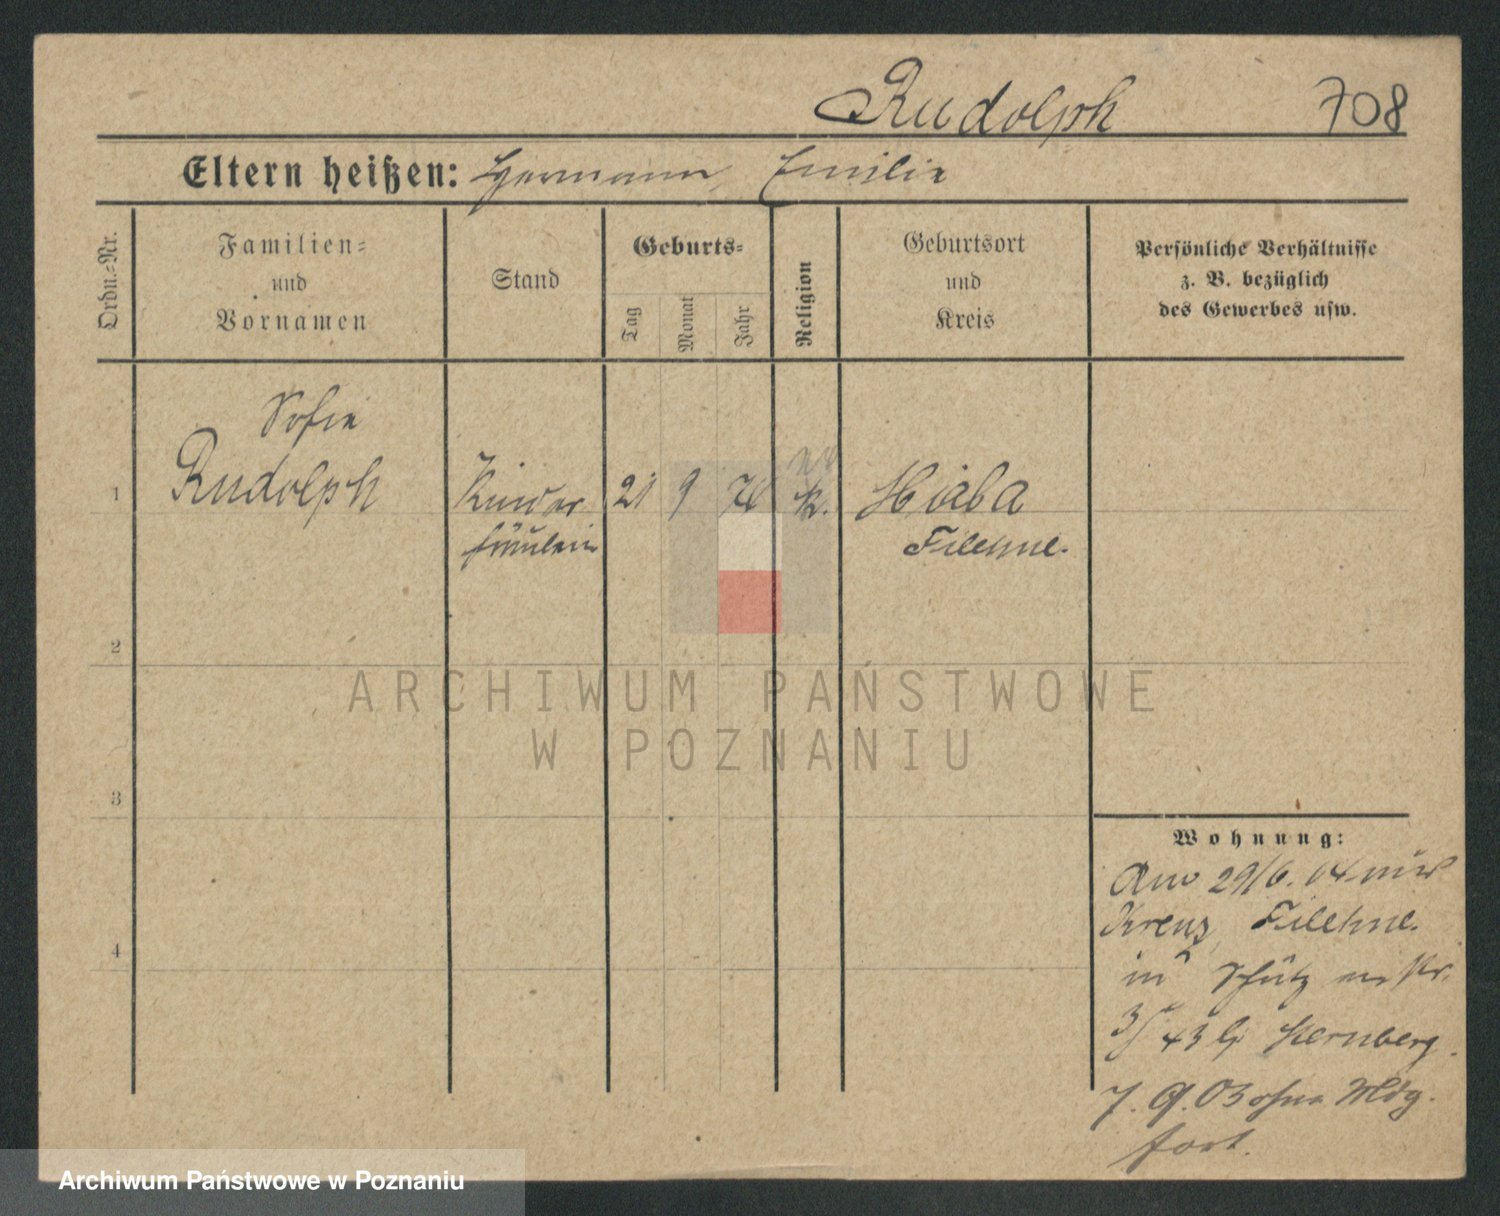 Rudolph 708
Eltern heißen: Hermann, Emilie
Ordn.-Nr.
Familien-
und
Vornamen
Stand
Geburts-
Tag
Monat
Jahr
Religion
Geburtsort
und
Kreis
Persönliche Verhältnisse
z. B. bezüglich
des Gewerbes usw.
Sofie
1 Rudolph Kinder 21 9 k. Hiaba
fräulein Filehne.
2
ARCHIWUM PAŃSTWOWE
W POZNANIU
3
Wohnung:
29/6. 04
Kreuz, Filehne.
4
in Schütz
43 Sternberg.
7. 9. ohne Mldg.
fort.
Archiwum Państwowe w Poznaniu